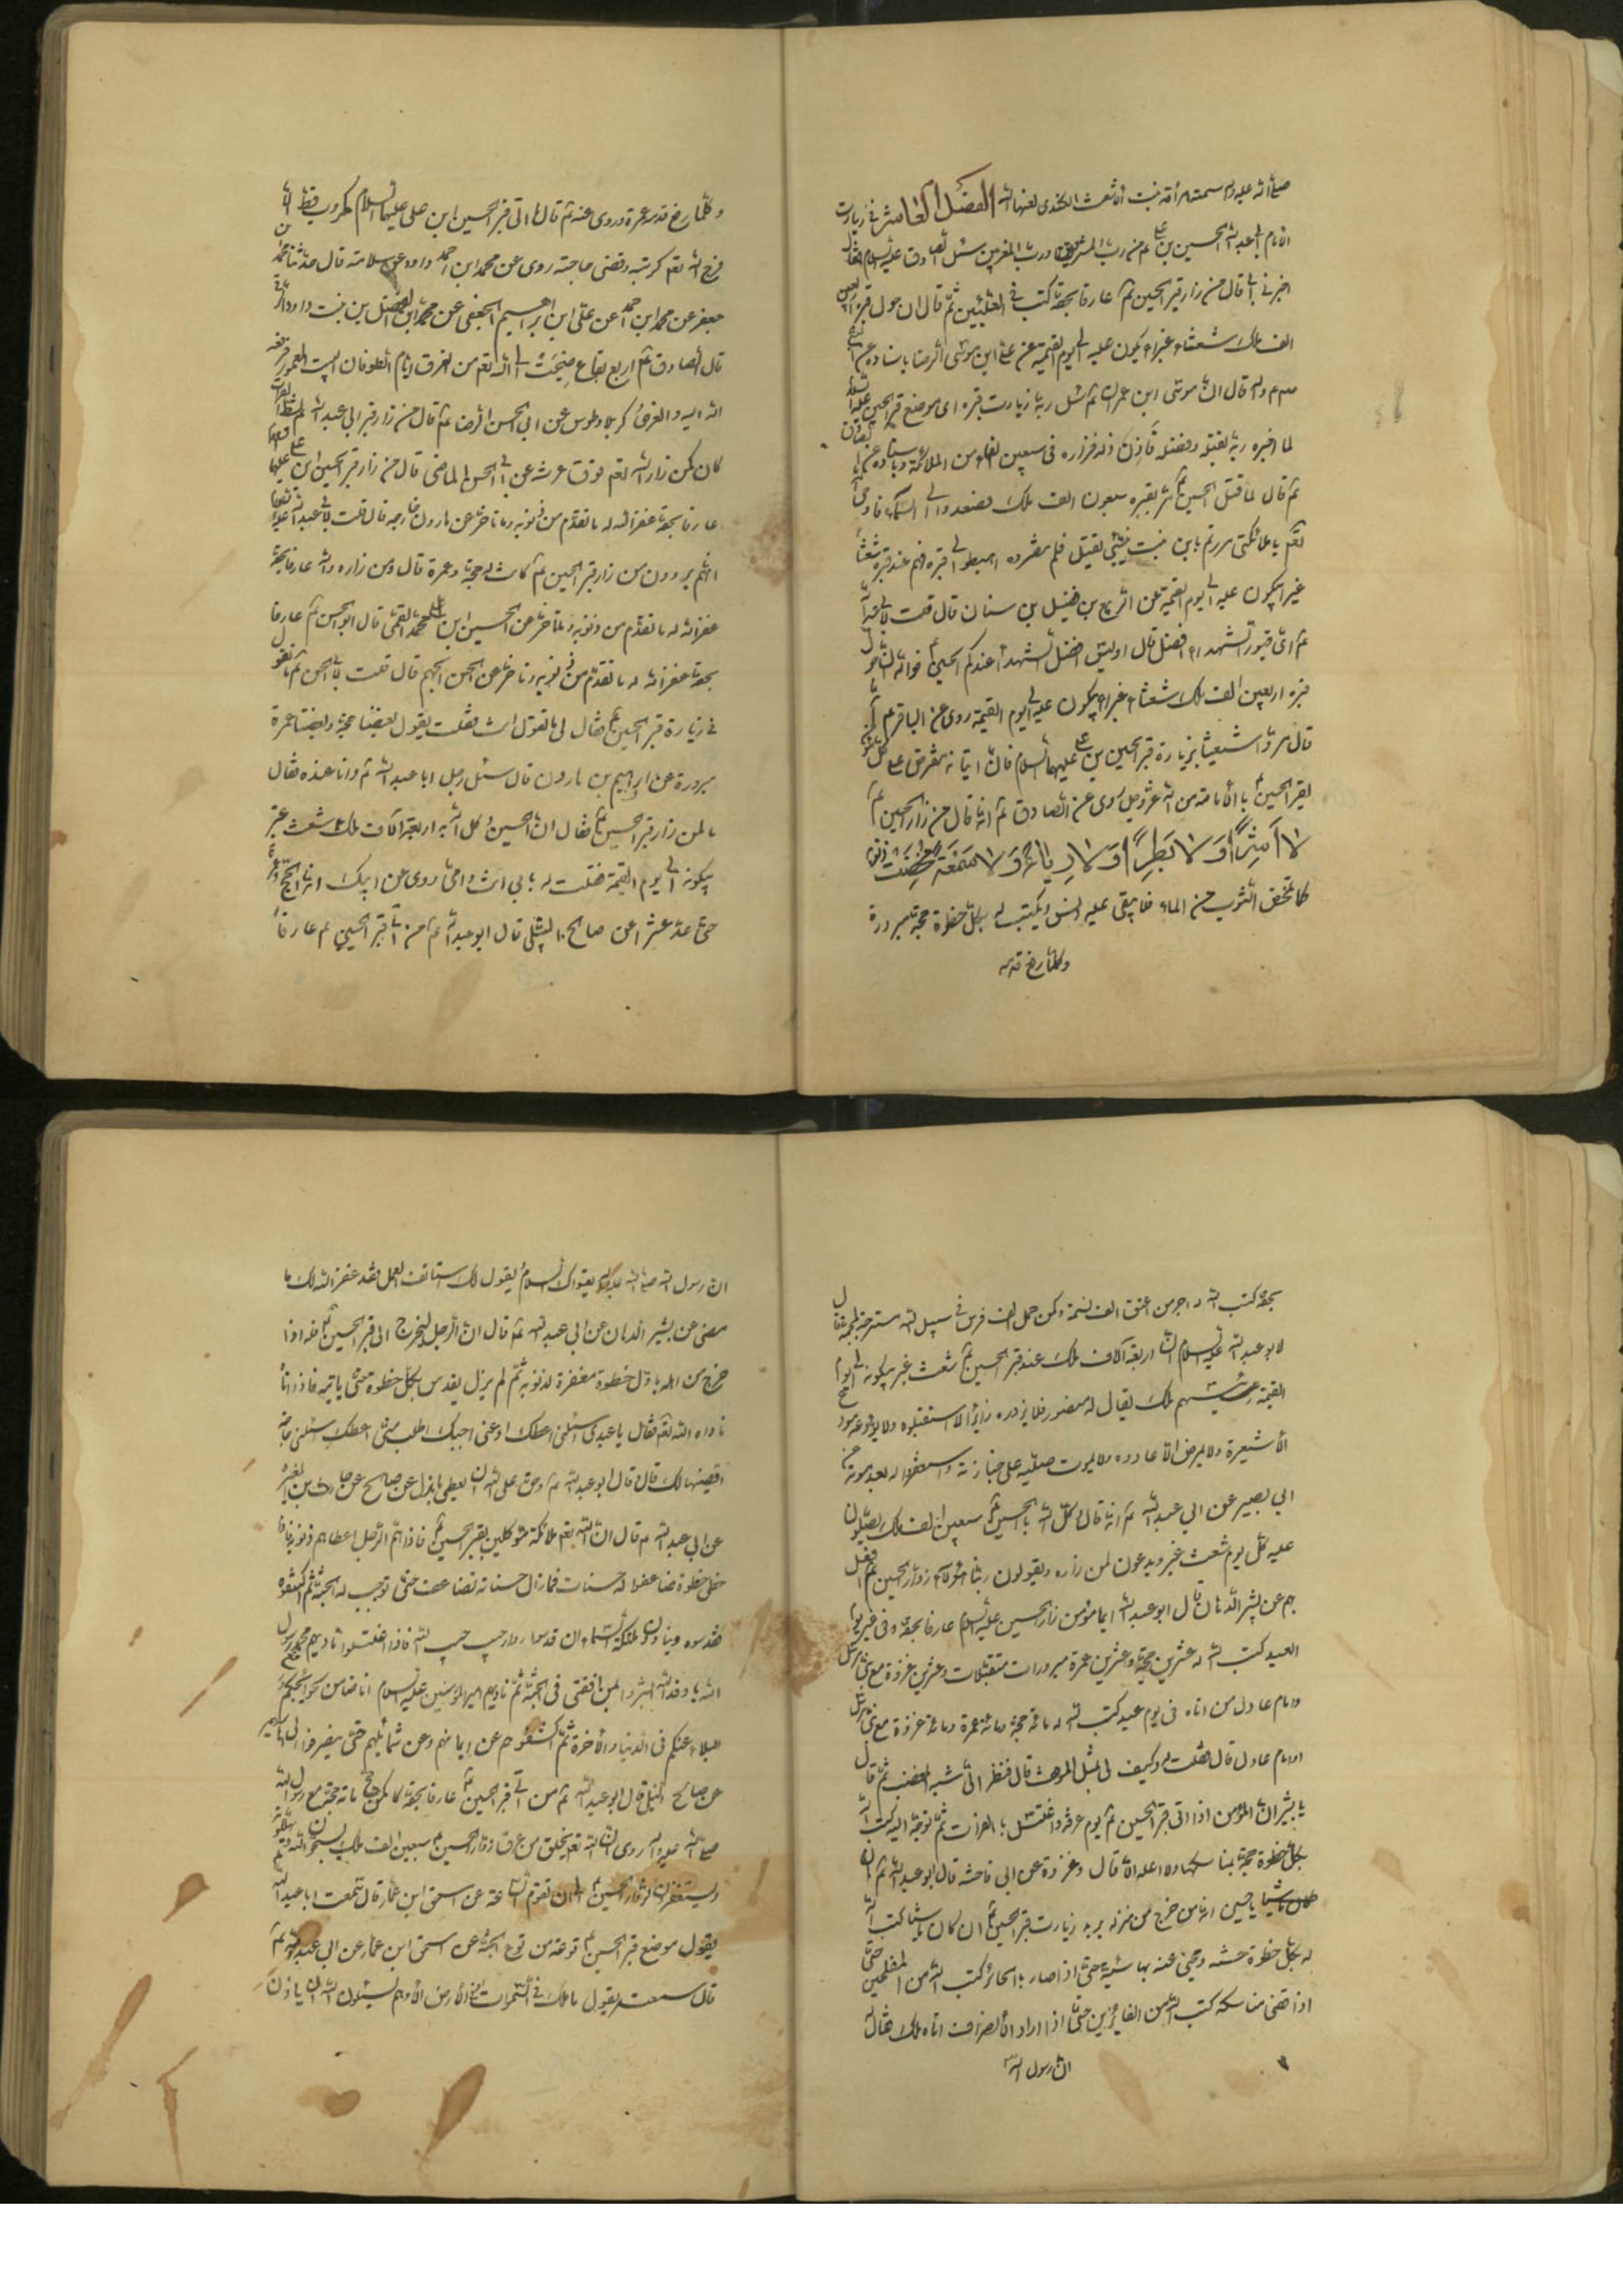 صلى الله عليه واله سمته امرأته بنت اشعث الكندي لعنهما الله الفصل العاشر في زيارت
الامام ابي عبد الله الحسين بن علي رب المشرقين ورب المغربين سئل الصادق عليه السلام فقال
اخبرني ابي قال من زار قبر الحسين ع عارفا بحقه كتب في العليين ثم قال ان حول قبر الحسين
الف ملك شعثاء غبراء يبكون عليه الى يوم القيمة عن علي ابن موسى الرضا باسناده عن النبي
قال ان موسى ابن عمران ع سئل ربه زيارت قبره اي موضع قبر الحسين عليه السلام
لما اخبره ربه بقتله وفضله فاذن له فزاره في سبعين الفا من الملائكة وباسناده عن
ع قال لما قتل الحسين ع مر بقبره سبعون الف ملك فصعدوا الى السماء فاوحى
تعم يا ملائكتي مررتم بابن بنت نبيي يقتل فلم تنصروه اهبطوا الى قبره فهم عند قبره شعثا
غبرا يبكون عليه الى يوم القيمة عن الربيع بن فضيل بن سنان قال قلت لابي عبد الله
ع اي قبور الشهداء افضل قال اوليس افضل الشهداء عندكم الحسين ع فوالله ان حول
قبره اربعين الف ملك شعثاء غبراء يبكون عليه الى يوم القيمة روى عن الباقر ع انه
قال مروا شيعتنا بزيارة قبر الحسين بن علي عليهما السلام فان اتيانه مفترض على كل مؤمن
يقر للحسين ع بالامامة من الله عز وجل روى عن الصادق ع انه قال من زار الحسين ع
لا اَشِرًا وَلا بَطِرًا وَلا رِياءً وَلا سُمْعَة مُحِّصَت ذنوبه
كما يمحص الثوب من الماء فلا يبقى عليه دنس ويكتب له بكل خطوة حجة مبرورة
وكلما رفع قدمه
وكلما رفع قدمه عمرة وروى عنه ع قال ما اتى قبر الحسين ابن علي عليهما السلام مكروب قط الا
فرج الله تعم كربته وقضى حاجته روى عن محمد ابن احمد داود عن سلامة قال حدثنا محمد ابن
جعفر عن محمد ابن احمد عن علي ابن ابراهيم الجعفي عن محمد ابن الفضل بن بنت داود الرقي
قال الصادق ع اربع بقاع ضجت الى الله تعم من الغرق ايام الطوفان البيت المعمور فرفعه
الله اليه والغري كربلا وطوس عن ابي الحسن الرضا ع قال من زار قبر ابي عبد الله بشط الفرات
كان كمن زار الله تعم فوق عرشه عن ابي الحسن الماضي قال من زار قبر الحسين ابن علي عليهما
عارفا بحقه غفر الله له ما تقدم من ذنوبه وما تاخر عن هارون خارجه قال قلت لابي عبد الله
انهم يروون من زار قبر الحسين ع كانت له حجة وعمرة قال ومن زاره والله عارفا بحقه
غفر الله له ما تقدم من ذنوبه وما تاخر عن الحسين ابن محمد القمي قال ابو الحسن ع عارفا
بحقه غفر الله له ما تقدم من ذنوبه وما تاخر عن الحسن الجهم قال قلت لابي الحسن ع ما تقول
في زيارة قبر الحسين ع فقال لي ما تقول انت فقلت يقول بعضنا حجة وبعضنا عمرة
مبرورة عن ابراهيم بن هارون قال سئل رجل ابا عبد الله ع وانا عنده فقال
ما لمن زار قبر الحسين ع فقال ان الحسين وكل الله به اربعة آلاف ملك شعث غبر
يبكونه الى يوم القيمة فقلت له بابي انت وامي روى عن ابيك انه الحج وعمرة
حتى عد عشرا عن صالح النيلي قال ابو عبد الله ع من اتى قبر الحسين ع عارفا
بحقه كتب الله له اجر من اعتق الف نسمة وكمن حمل الف فرس في سبيل الله مسرجة ملجمة قال
ابو عبد الله عليه السلام ان اربعة آلاف ملك عند قبر الحسين ع شعث غبر يبكونه الى يوم
القيمة رئيسهم ملك يقال له منصور فلا يزوره زاير الا استقبلوه ولا يودعه مودع
الا شيعوه ولا يمرض الا عادوه ولا يموت صلوا عليه على جنازته واستغفروا له بعد موته عن
ابي بصير عن ابي عبد الله ع انه قال وكل الله بالحسين ع سبعين الف ملك يصلون
عليه كل يوم شعث غبر ويدعون لمن زاره ويقولون ربنا هؤلاء زوار الحسين ع افعل
بهم عن بشير الدهان قال ابو عبد الله ايما مؤمن زار الحسين عليه السلام عارفا بحقه في غير يوم
العيد كتب الله له عشرين حجة وعشرين عمرة مبرورات متقبلات وعشرين غزوة مع نبي مرسل
وامام عادل من اتاه في يوم عيد كتب الله له مائة حجة ومائة عمرة ومائة غزوة مع نبي مرسل
او امام عادل قال فقلت له وكيف لي بمثل الموقف قال فنظر الي شبه المغضب ثم قال
يا بشير ان المؤمن اذا اتى قبر الحسين ع يوم عرفة واغتسل بالفرات ثم توجه اليه كتب الله
بكل خطوة حجة بمناسكها ولا اعلمه الا قال وغزوة عن ابي فاخته قال ابو عبد الله ع
يا حسين انه من خرج من منزله يريد زيارت قبر الحسين ع ان كان ماشيا كتب الله
له بكل خطوة حسنة ومحى عنه بها سيئة حتى اذا صار بالحائر كتب الله من المفلحين حتى
اذا قضى مناسكه كتب الله من الفايزين حتى اذا اراد الانصراف اتاه ملك فقال له
ان رسول الله
ان رسول الله صلى الله عليه واله يقرؤك السلام يقول لك استانف العمل فقد غفر الله لك ما
مضى عن بشير الدهان عن ابي عبد الله ع قال ان الرجل ليخرج الى قبر الحسين ع فله اذا
خرج من اهله باول خطوة مغفرة لذنوبه ثم لم يزل يقدس بكل خطوة حتى ياتيه فاذا اتاه
ناداه الله تعم فقال يا عبدي اسئلني اعطك ادعني اجبك اطلب مني اعطك سئلني حاجة
اقضيها لك قال وقال ابو عبد الله ع وحق على الله ان يعطي ما بذل عن صالح عن حارث بن المغيرة
عن ابي عبد الله ع قال ان لله تعم ملائكة موكلين بقبر الحسين ع فاذا هم الرجل اعطاهم ذنوبه فاذا
خطى خطوة ضاعفوا له حسنات فما زال حسناته تضاعف حتى توجب له الجنة ثم اكتنفوه
فقدسوه وينادون ملئكة السماء ان قدسوا زوار حبيب حبيب الله فاذا اغتسلوا ناديهم محمد رسول
الله يا وفد الله ابشروا بمرافقتي في الجنة ثم ناديهم امير المؤمنين عليه السلام انا ضامن لحوائجكم ودفع
البلاء عنكم في الدنيا والآخرة ثم اكتنفوهم عن ايمانهم وعن شمائلهم حتى ينصرفوا الى اهاليهم
عن صالح النيلي قال ابو عبد الله ع من اتى قبر الحسين ع عارفا بحقه كان كمن حج مائة حجة مع رسول الله
صلى الله عليه واله روى ان الله تعم يخلق من عرق زوار الحسين ع سبعين الف ملك يسبحون الله
ويستغفرون لزوار الحسين ع الى ان تقوم الساعة عن اسحق ابن عمار قال سمعت ابا عبد الله
يقول موضع قبر الحسين ع ترعة من ترع الجنة عن اسحق ابن عمار عن ابي عبد الله ع
قال سمعته يقول ما ملك في السموات والارض الا وهم يسئلون الله ان ياذن